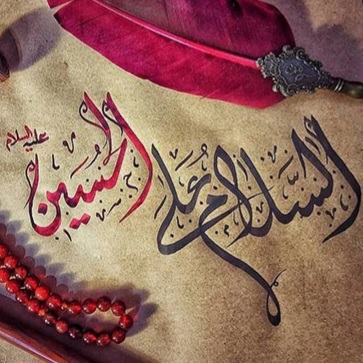 السَّلام على الحُسين
عليه السلام